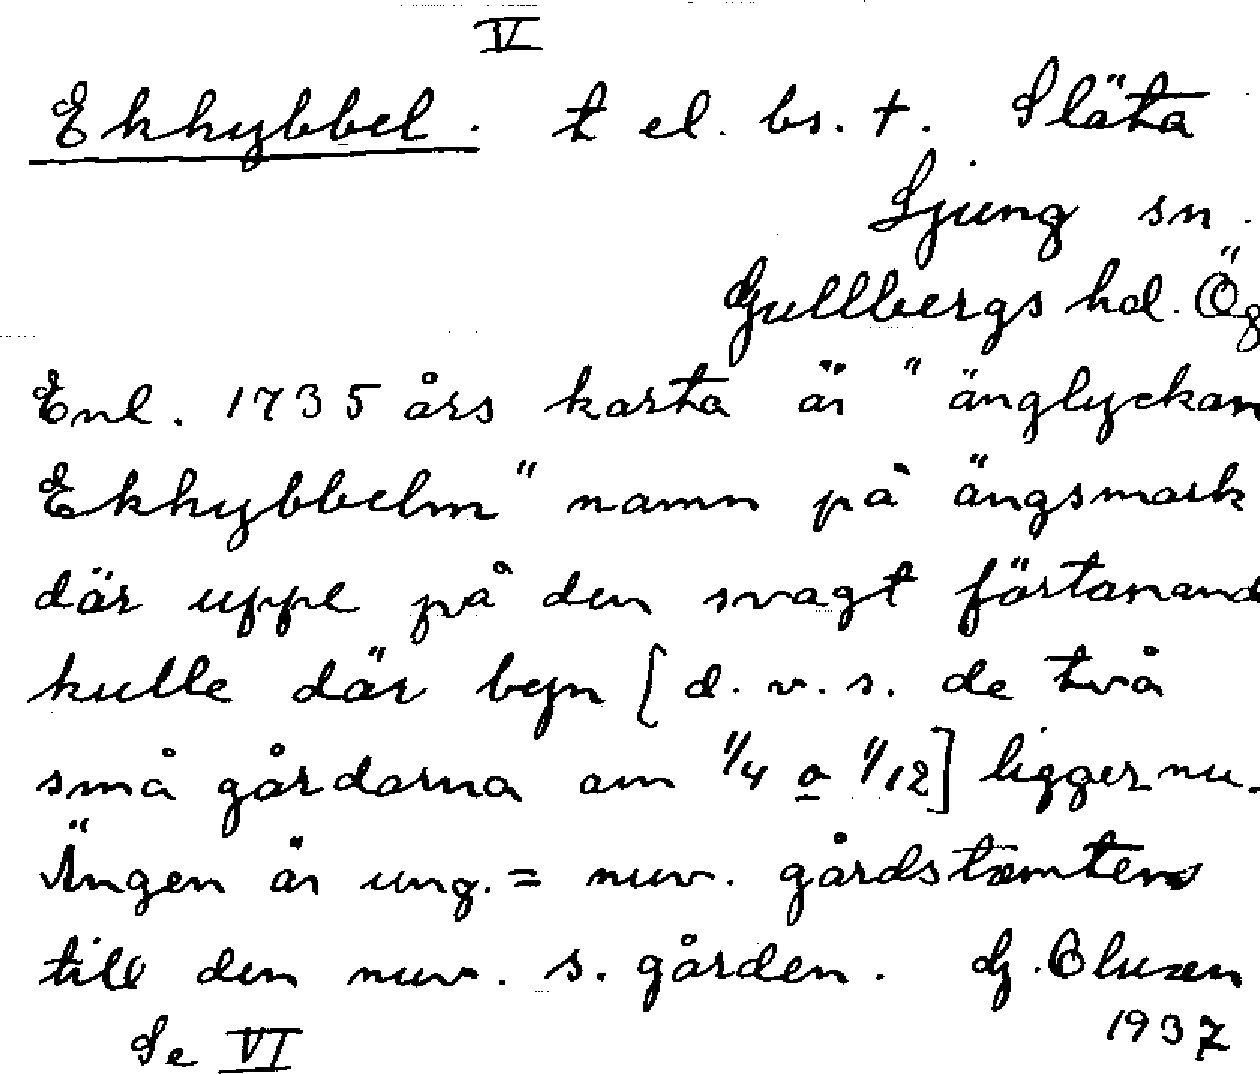 V
Ekhybbel. t el. bs. †. Släta
Ljung sn.
Gullbergs hd. Ög
Enl. 1735 års karta är "änglyckan
Ekhybbelm" namn på ängsmark
där uppe på den svagt förtonand
kulle där byn [d.v.s. de två
små gårdarna om 1/4 o 1/12] ligger nu.
Ängen är ung. = nuv. gårdstomten
till den nuv. s. gården. Hj. Oluxen
1937
Se VI